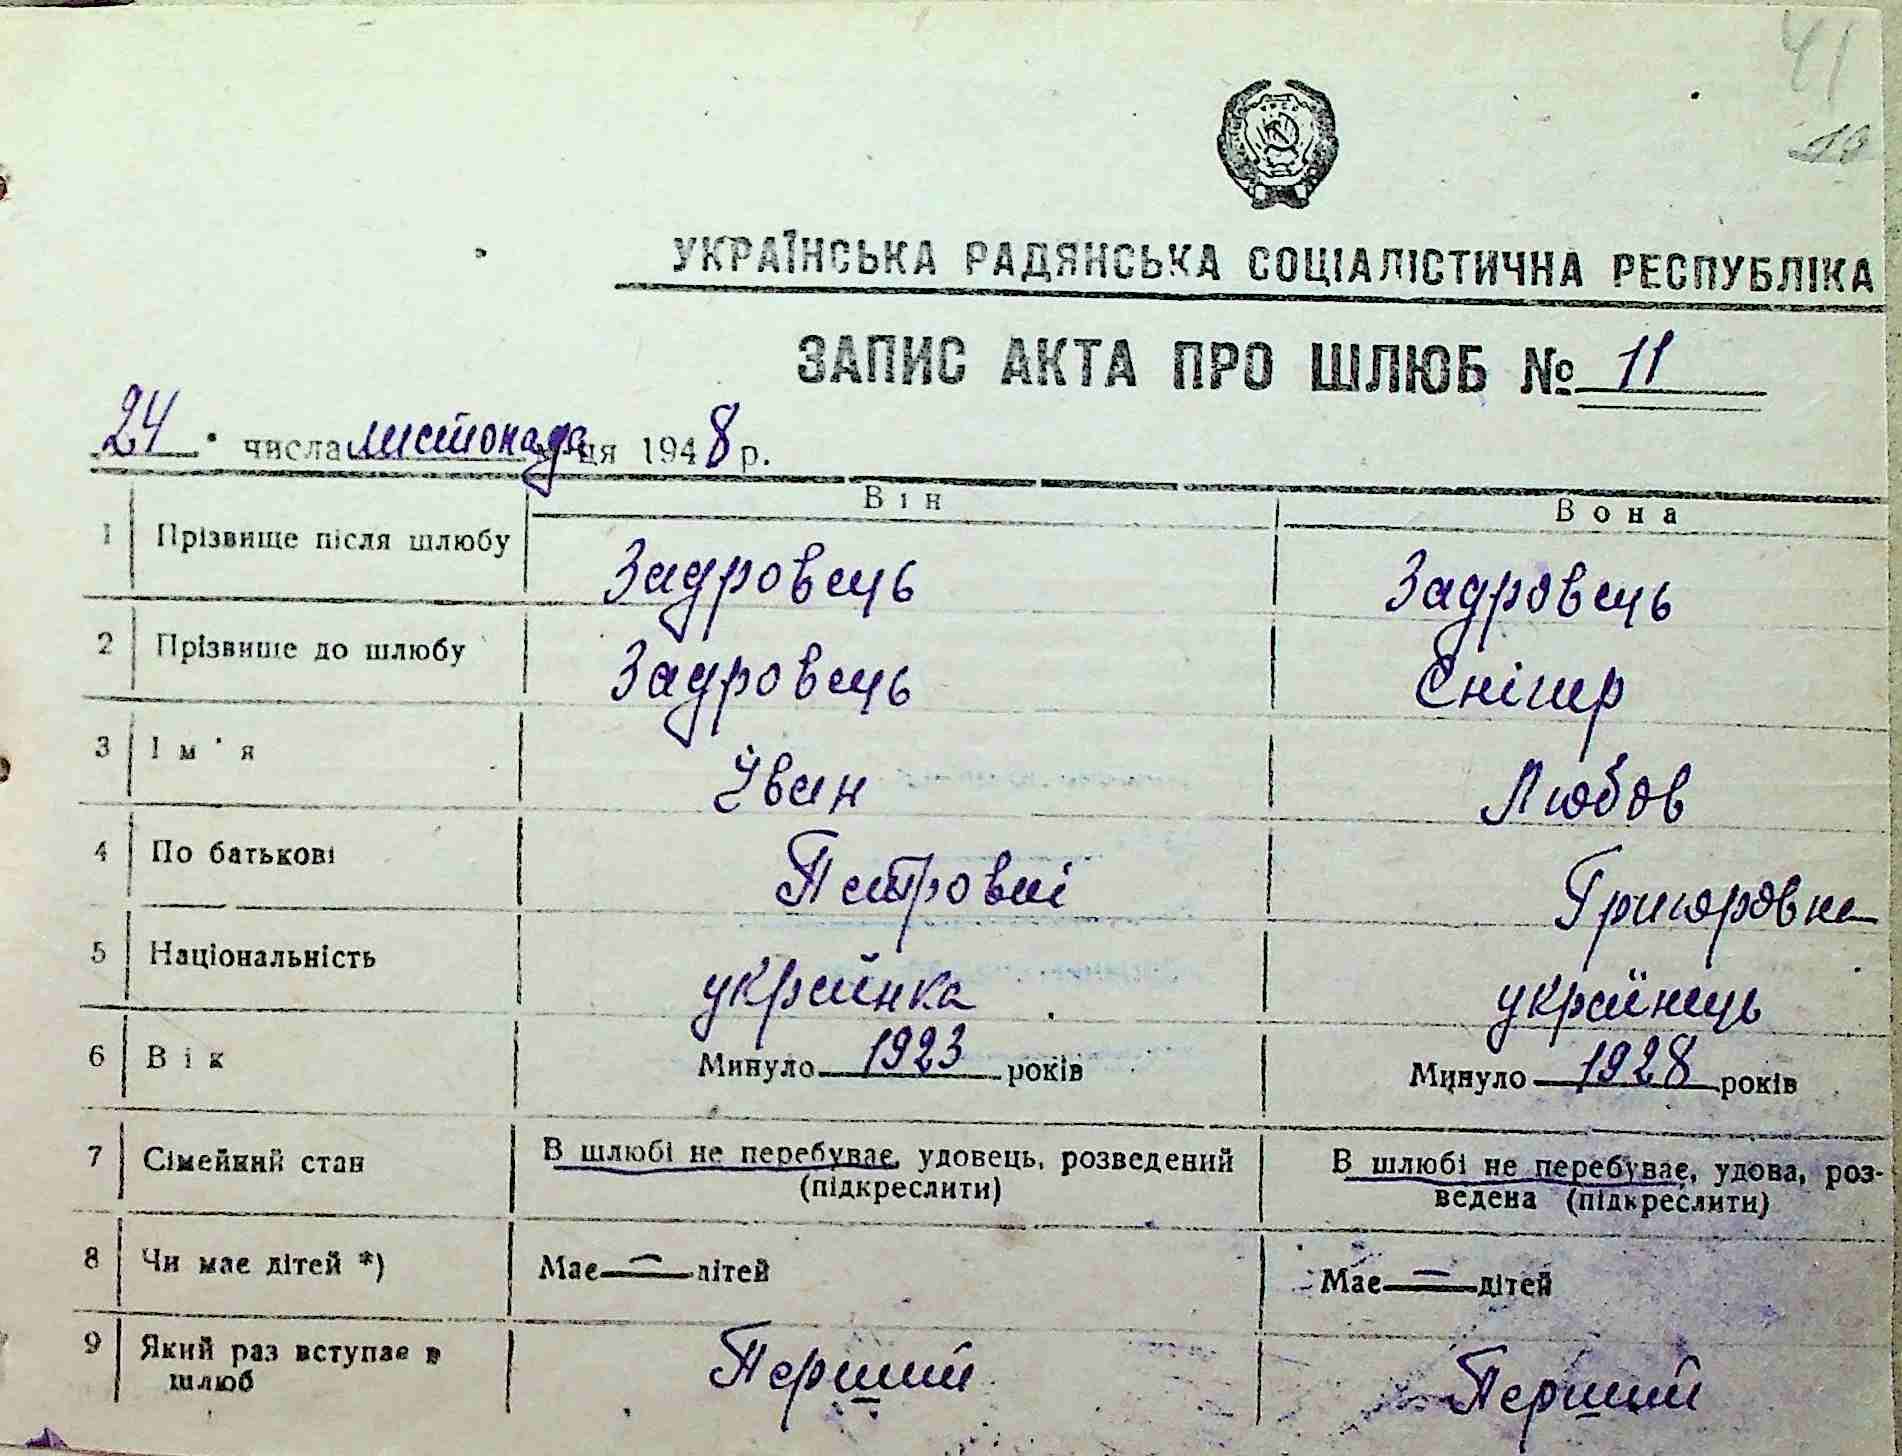 41
10
УКРАЇНСЬКА РАДЯНСЬКА СОЦІАЛІСТИЧНА РЕСПУБЛІКА
ЗАПИС АКТА ПРО ШЛЮБ № 11
24 числа листопада ця 1948 р.
Він Вона
1 Прізвище після шлюбу Задровець Задровець
2 Прізвище до шлюбу Задровець Снігир
3 Ім'я Іван Любов
4 По батькові Петрович Григоровна
5 Національність українка українець
6 Вік Минуло 1923 років Минуло 1928 років
7 Сімейний стан В шлюбі не перебуває, удовець, розведений В шлюбі не перебуває, удова, роз-
(підкреслити) ведена (підкреслити)
8 Чи має дітей *) Має — дітей Має — дітей
9 Який раз вступає в Перший Перший
шлюб